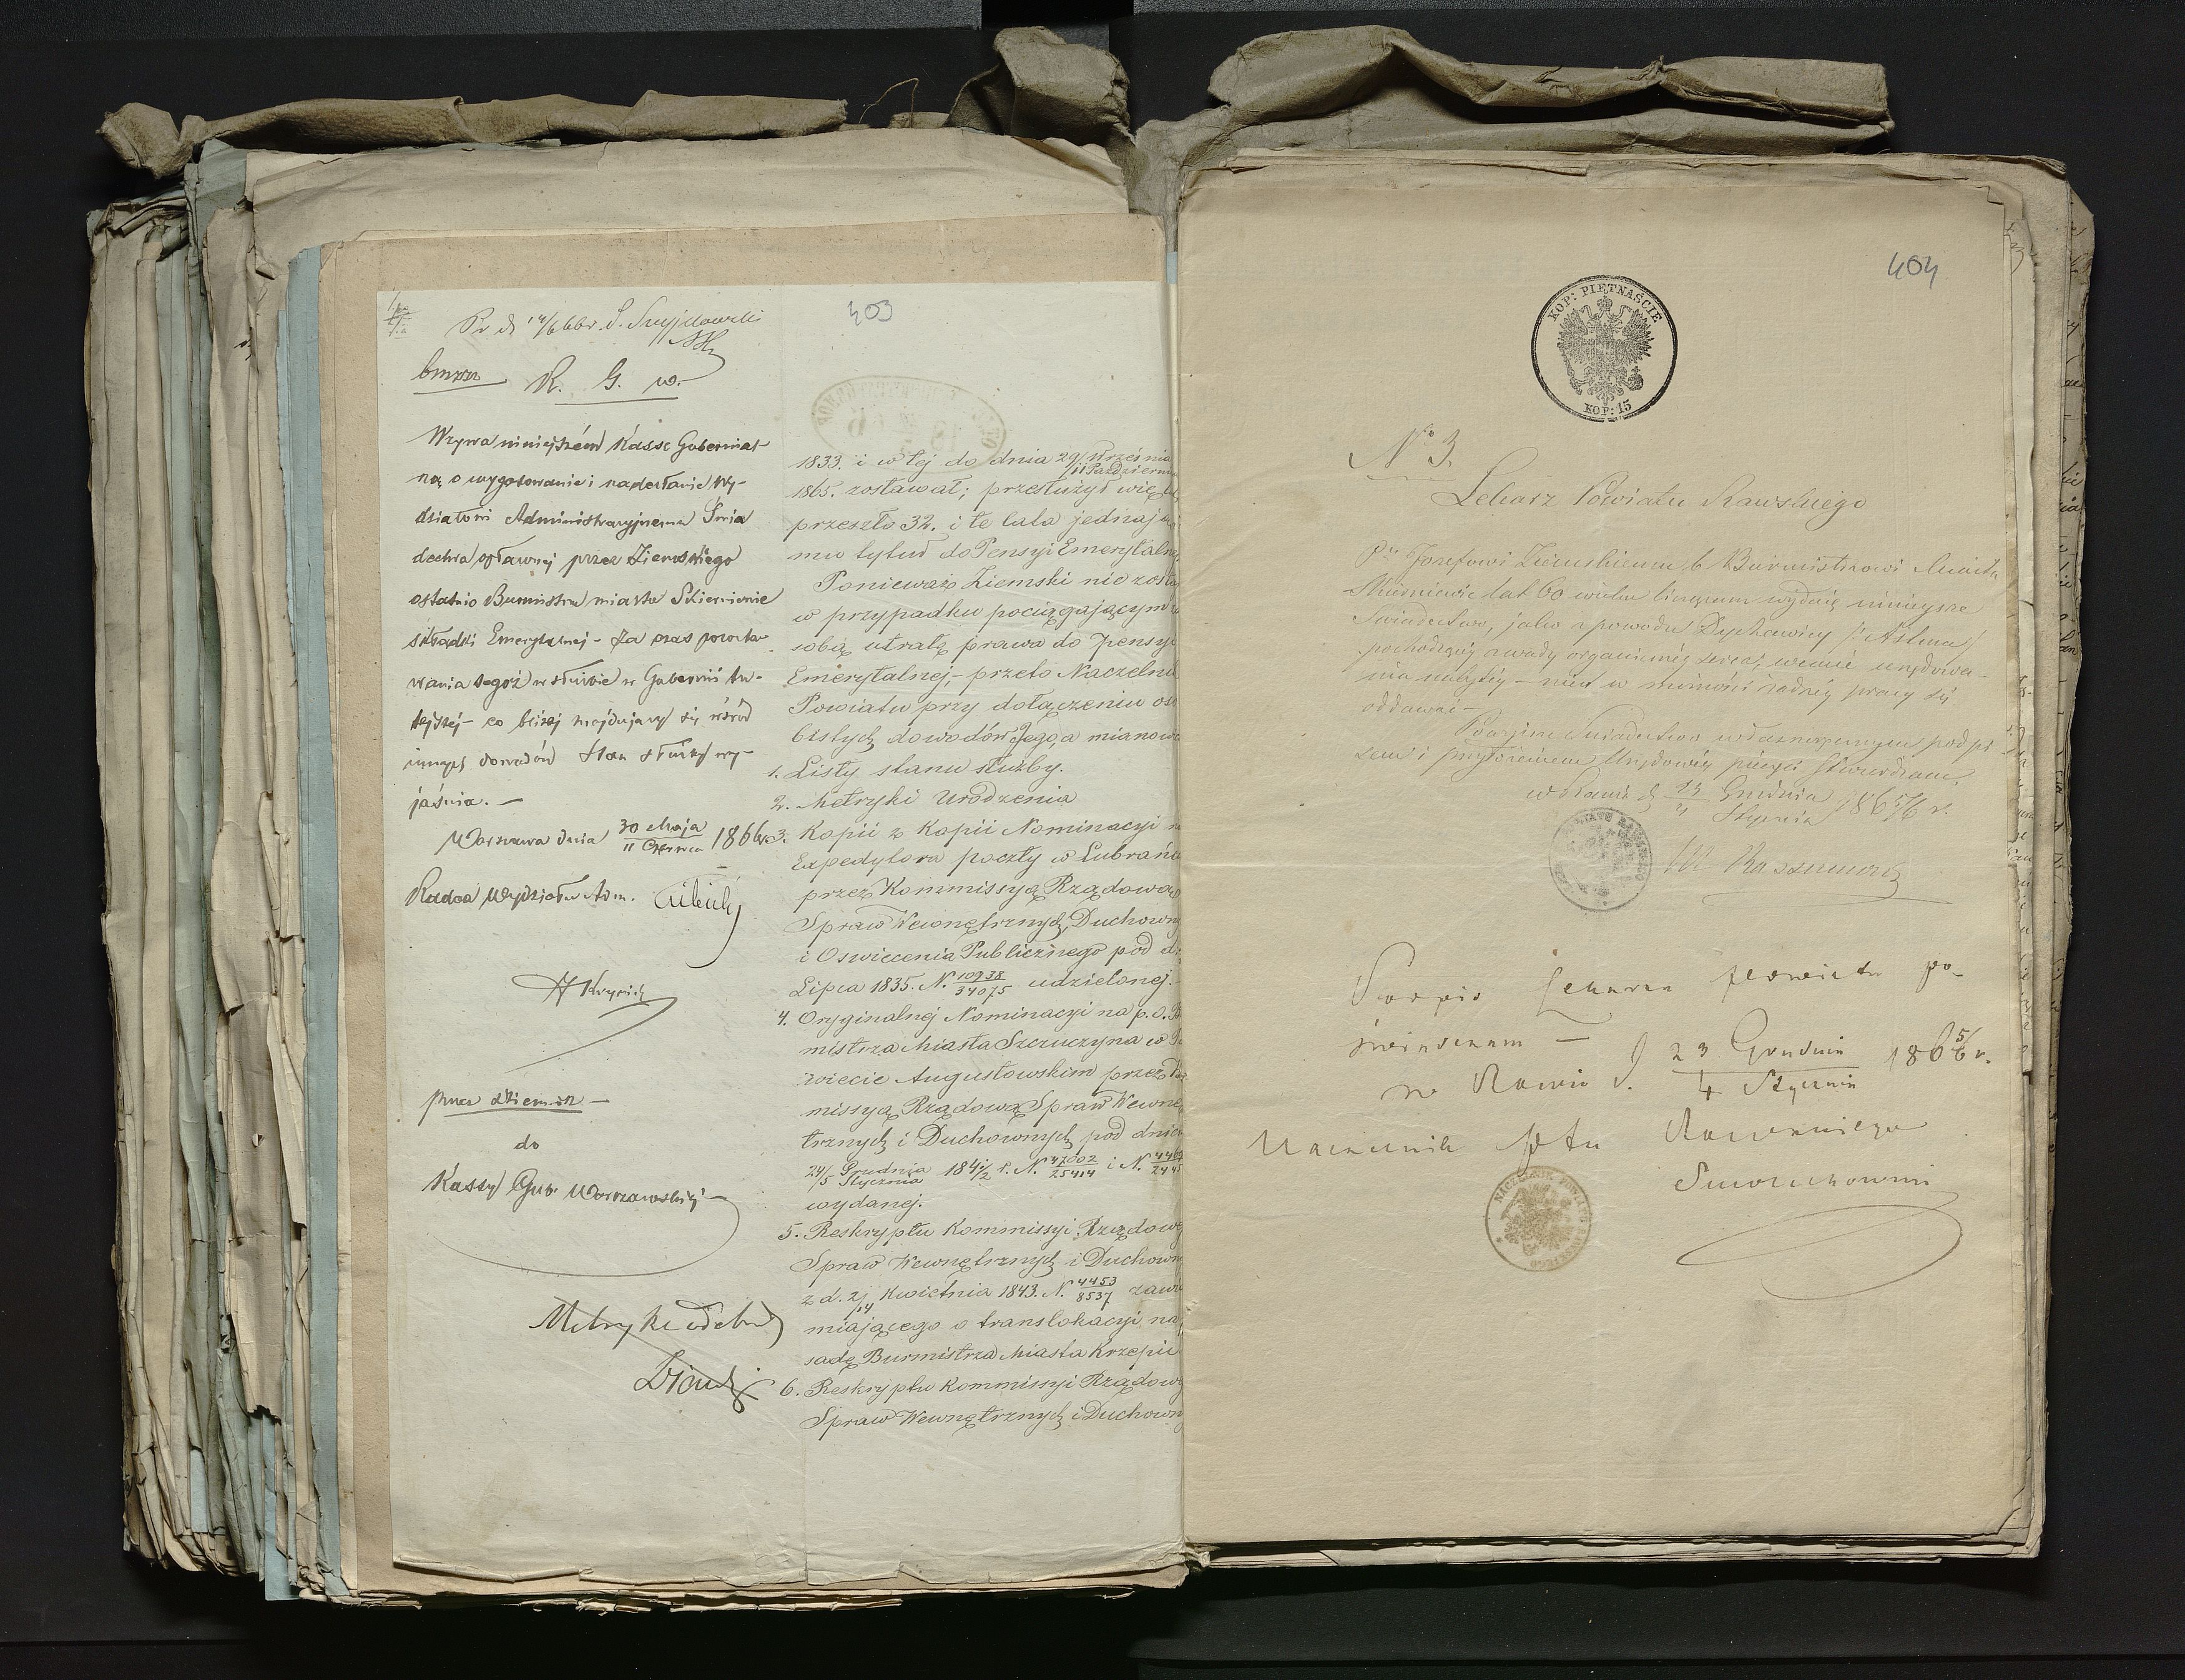 403
R. G. W.
Wzywa niniejszém Kassę Gubernial-
ną o wygotowanie i nadesłanie Wy-
działowi Administracyjnemu Świa
dectwa opłaconej przez Ziemskiego
ostatnio Burmistrza miasta Skierniewic
składki Emerytalnej – za czas pozosta-
wania tegoż w służbie w Gubernii tu-
tejszej – co bliżej znajdujący się wśród
innych dowodów Stan służby wy-
jaśnia. –
Warszawa dnia 30 Maja / 11 Czerwca 1866 r.
Radca Wydziału Adm.
pracz Ziemski –
do
Kassy Gub. Warszawskiéj
Metrykę
1833. i w tej do dnia 29/11 Września / Październi
1865. zostawał; przesłużył więc
przeszło 32. i te lata jednają
mu tytuł do Pensyi Emerytalne
Ponieważ Ziemski nie zosta
w przypadku pociągającym z
sobą utratę prawa do pensyi
Emerytalnej, – przeto Naczelnik
Powiatu przy dołączeniu oso
bistych dowodów Jego, a mianowi
1. Listy stanu służby.
2. Metryki Urodzenia
3. Kopii z Kopii Nominacyi na
Expedytora poczty w Lubrańcu
przez Kommissyą Rządową
Spraw Wewnętrznych, Duchowny
i Oświecenia Publicznego pod d.
Lipca 1835. N. 10938/34075 udzielonej. –
4. Oryginalnej Nominacyi na p. o. B
mistrza Miasta Szczuczyna w Po
wiecie Augustowskim przez Kom
missyą Rządową Spraw Wewnę
trznych i Duchownych pod dniem
24/5 Grudnia / Stycznia 184 1/2 r. N. 47002/25414 i N.
wydanej.
5. Reskryptu Kommissyi Rządowej
Spraw Wewnętrznych i Duchown
z d. 2/14 Kwietnia 1843. N. 4453/8537 zawia
miającego o translokacyi na po
sadę Burmistrza Miasta Krzepic
6. Reskryptu Kommissyi Rządowej
Spraw Wewnętrznych i Duchown
404
KOP: PIĘTNAŚCIE
KOP: 15
N° 3.
Lekarz Powiatu Rawskiego
Pu Józefowi Ziemskiemu b. Burmistrzowi Miasta
Skierniewic lat 60 wieku liczącemu wydaję niniejsze
Świadectwo, jako z powodu Dychawicy /: Astma/
pochodzącej z wady organicznéj serca, w czasie urzędowa-
nia nabytéj – niest w możności żadnéj pracy się
oddawać –
Powyższe Świadectwo własnoręcznym podpi
sem i przyłożeniem Urzędowéj pieczęci stwierdzam
w Rawie d. 23/4 Grudnia / Stycznia 1865/6 r.
Podpis Lekarza powiatu po-
świadczam –
w Rawie d. 23 Grudnia / 4 Stycznia 1865/6 r.
Naczelnik Ptu Rawskiego
NACZELNIK POWIATU RAWSKIEGO